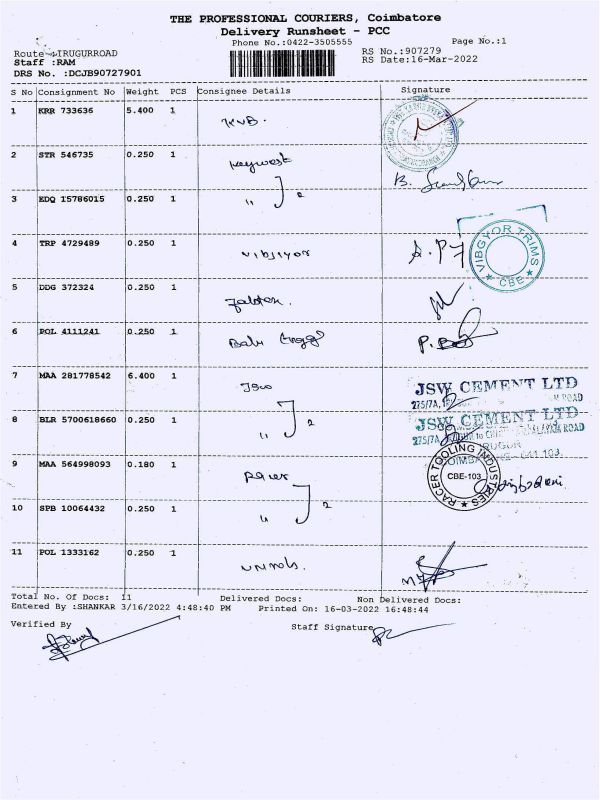 THE PROFESSIONAL COURIERS, Coimbatore
Delivery Runsheet - PCC
Phone No.:0422-3505555
Page No.:1
Route :IRUGURROAD
RS No.:907279
Staff :RAM
RS Date:16-Mar-2022
DRS No. :DCJB90727901
S No Consignment No Weight PCS Consignee Details Signature
1 KRR 733636 5.400 1 KNB.
2 STR 546735 0.250 1 Keywest
3 EDQ 15786015 0.250 1 " 2
4 TRP 4729489 0.250 1
VIBGYOR TRIMS
★ CBE ★
5 DDG 372324 0.250 1
6 POL 4111241 0.250 1 Babu Engg
7 MAA 281778542 6.400 1 JSW
JSW CEMENT LTD
275/7A,
8 BLR 5700618660 0.250 1 " 2
JSW CEMENT LTD
275/7A
9 MAA 564998093 0.180 1 Racer
RACER TOOLING INDUSTRIES ★
CBE-103
10 SPB 10064432 0.250 1 " 2
11 POL 1333162 0.250 1
Total No. Of Docs: 11 Delivered Docs: Non Delivered Docs:
Entered By :SHANKAR 3/16/2022 4:48:40 PM Printed On: 16-03-2022 16:48:44
Verified By
Staff Signature